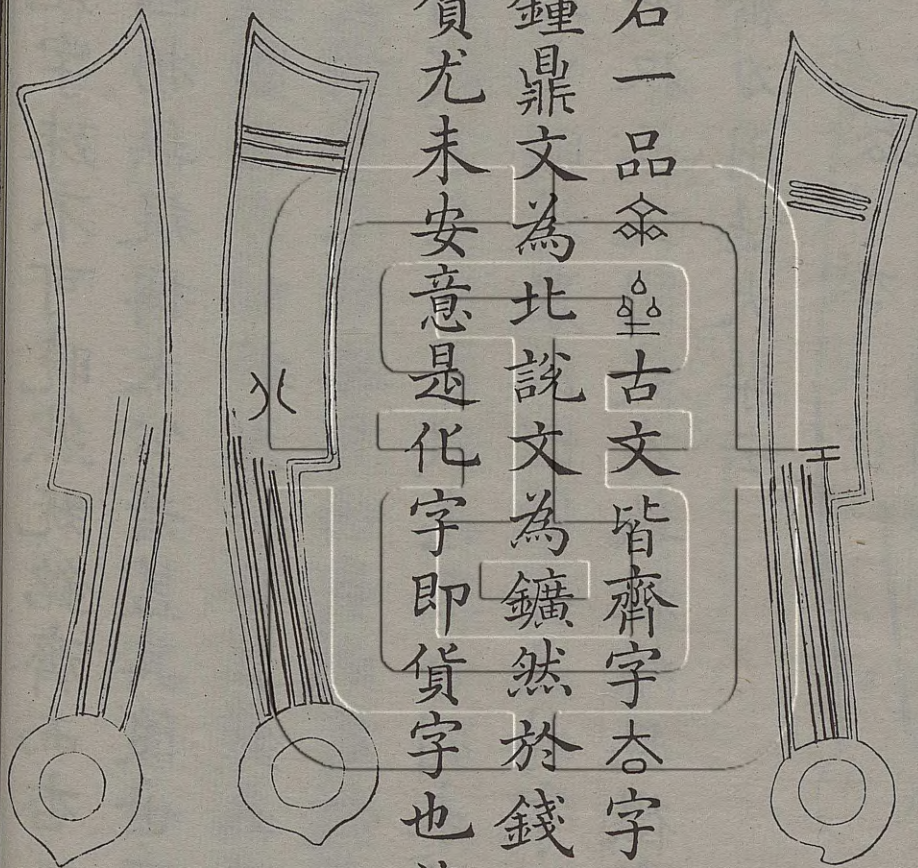 右一品𠫼亝古文皆齊字𠫓字
鐘鼎文為北說文為鑛然於錢
貨尤未安意是化字即貨字也